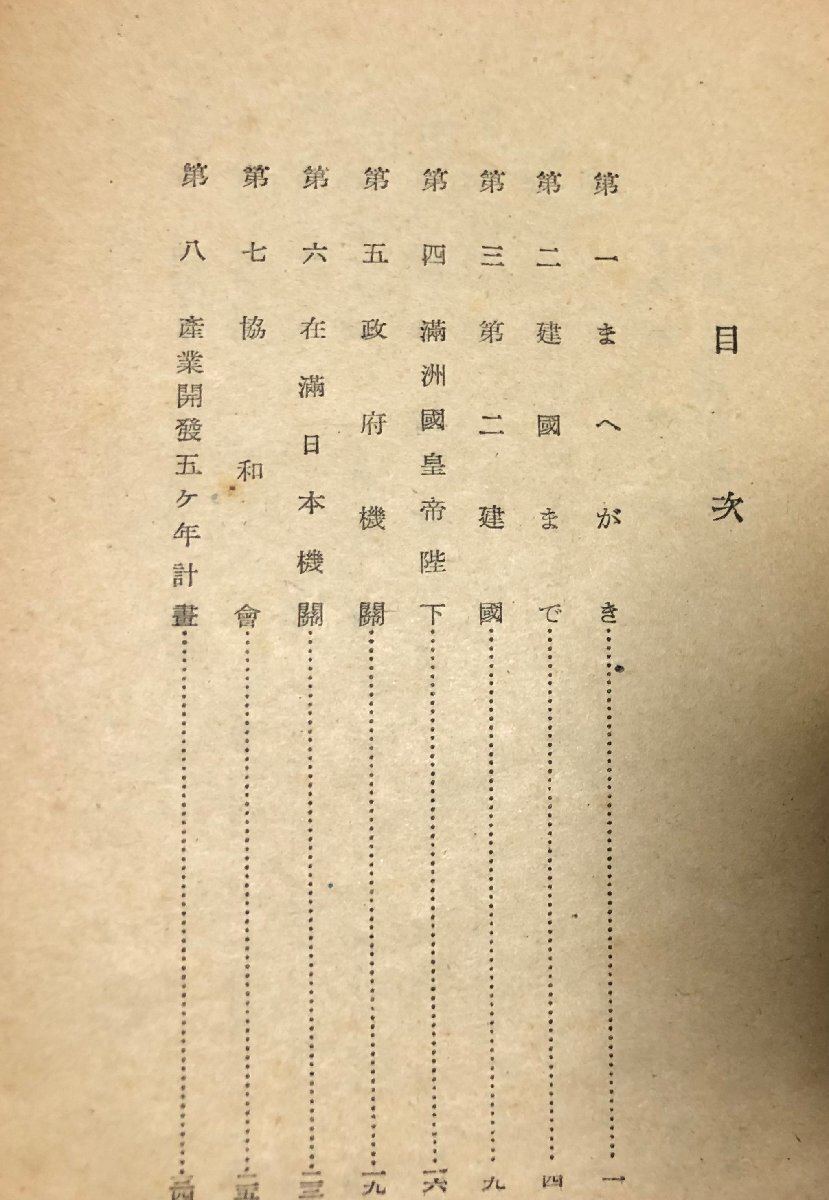 目次
第一 まへがき……………………一
第二 建國まで……………………四
第三 第二建國……………………九
第四 滿洲國皇帝陛下……………………一六
第五 政府機關……………………一九
第六 在滿日本機關……………………二三
第七 協和會……………………二五
第八 產業開發五ケ年計畫……………………三四